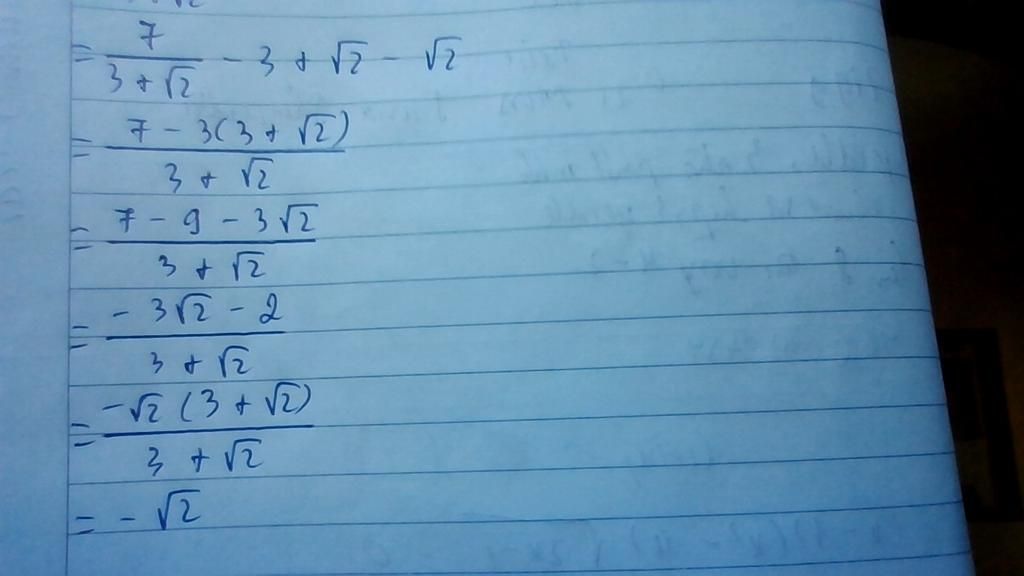 = 7/(3 + √2) - 3 + √2 - √2
= (7 - 3(3 + √2))/(3 + √2)
= (7 - 9 - 3√2)/(3 + √2)
= (-3√2 - 2)/(3 + √2)
= (-√2(3 + √2))/(3 + √2)
= -√2